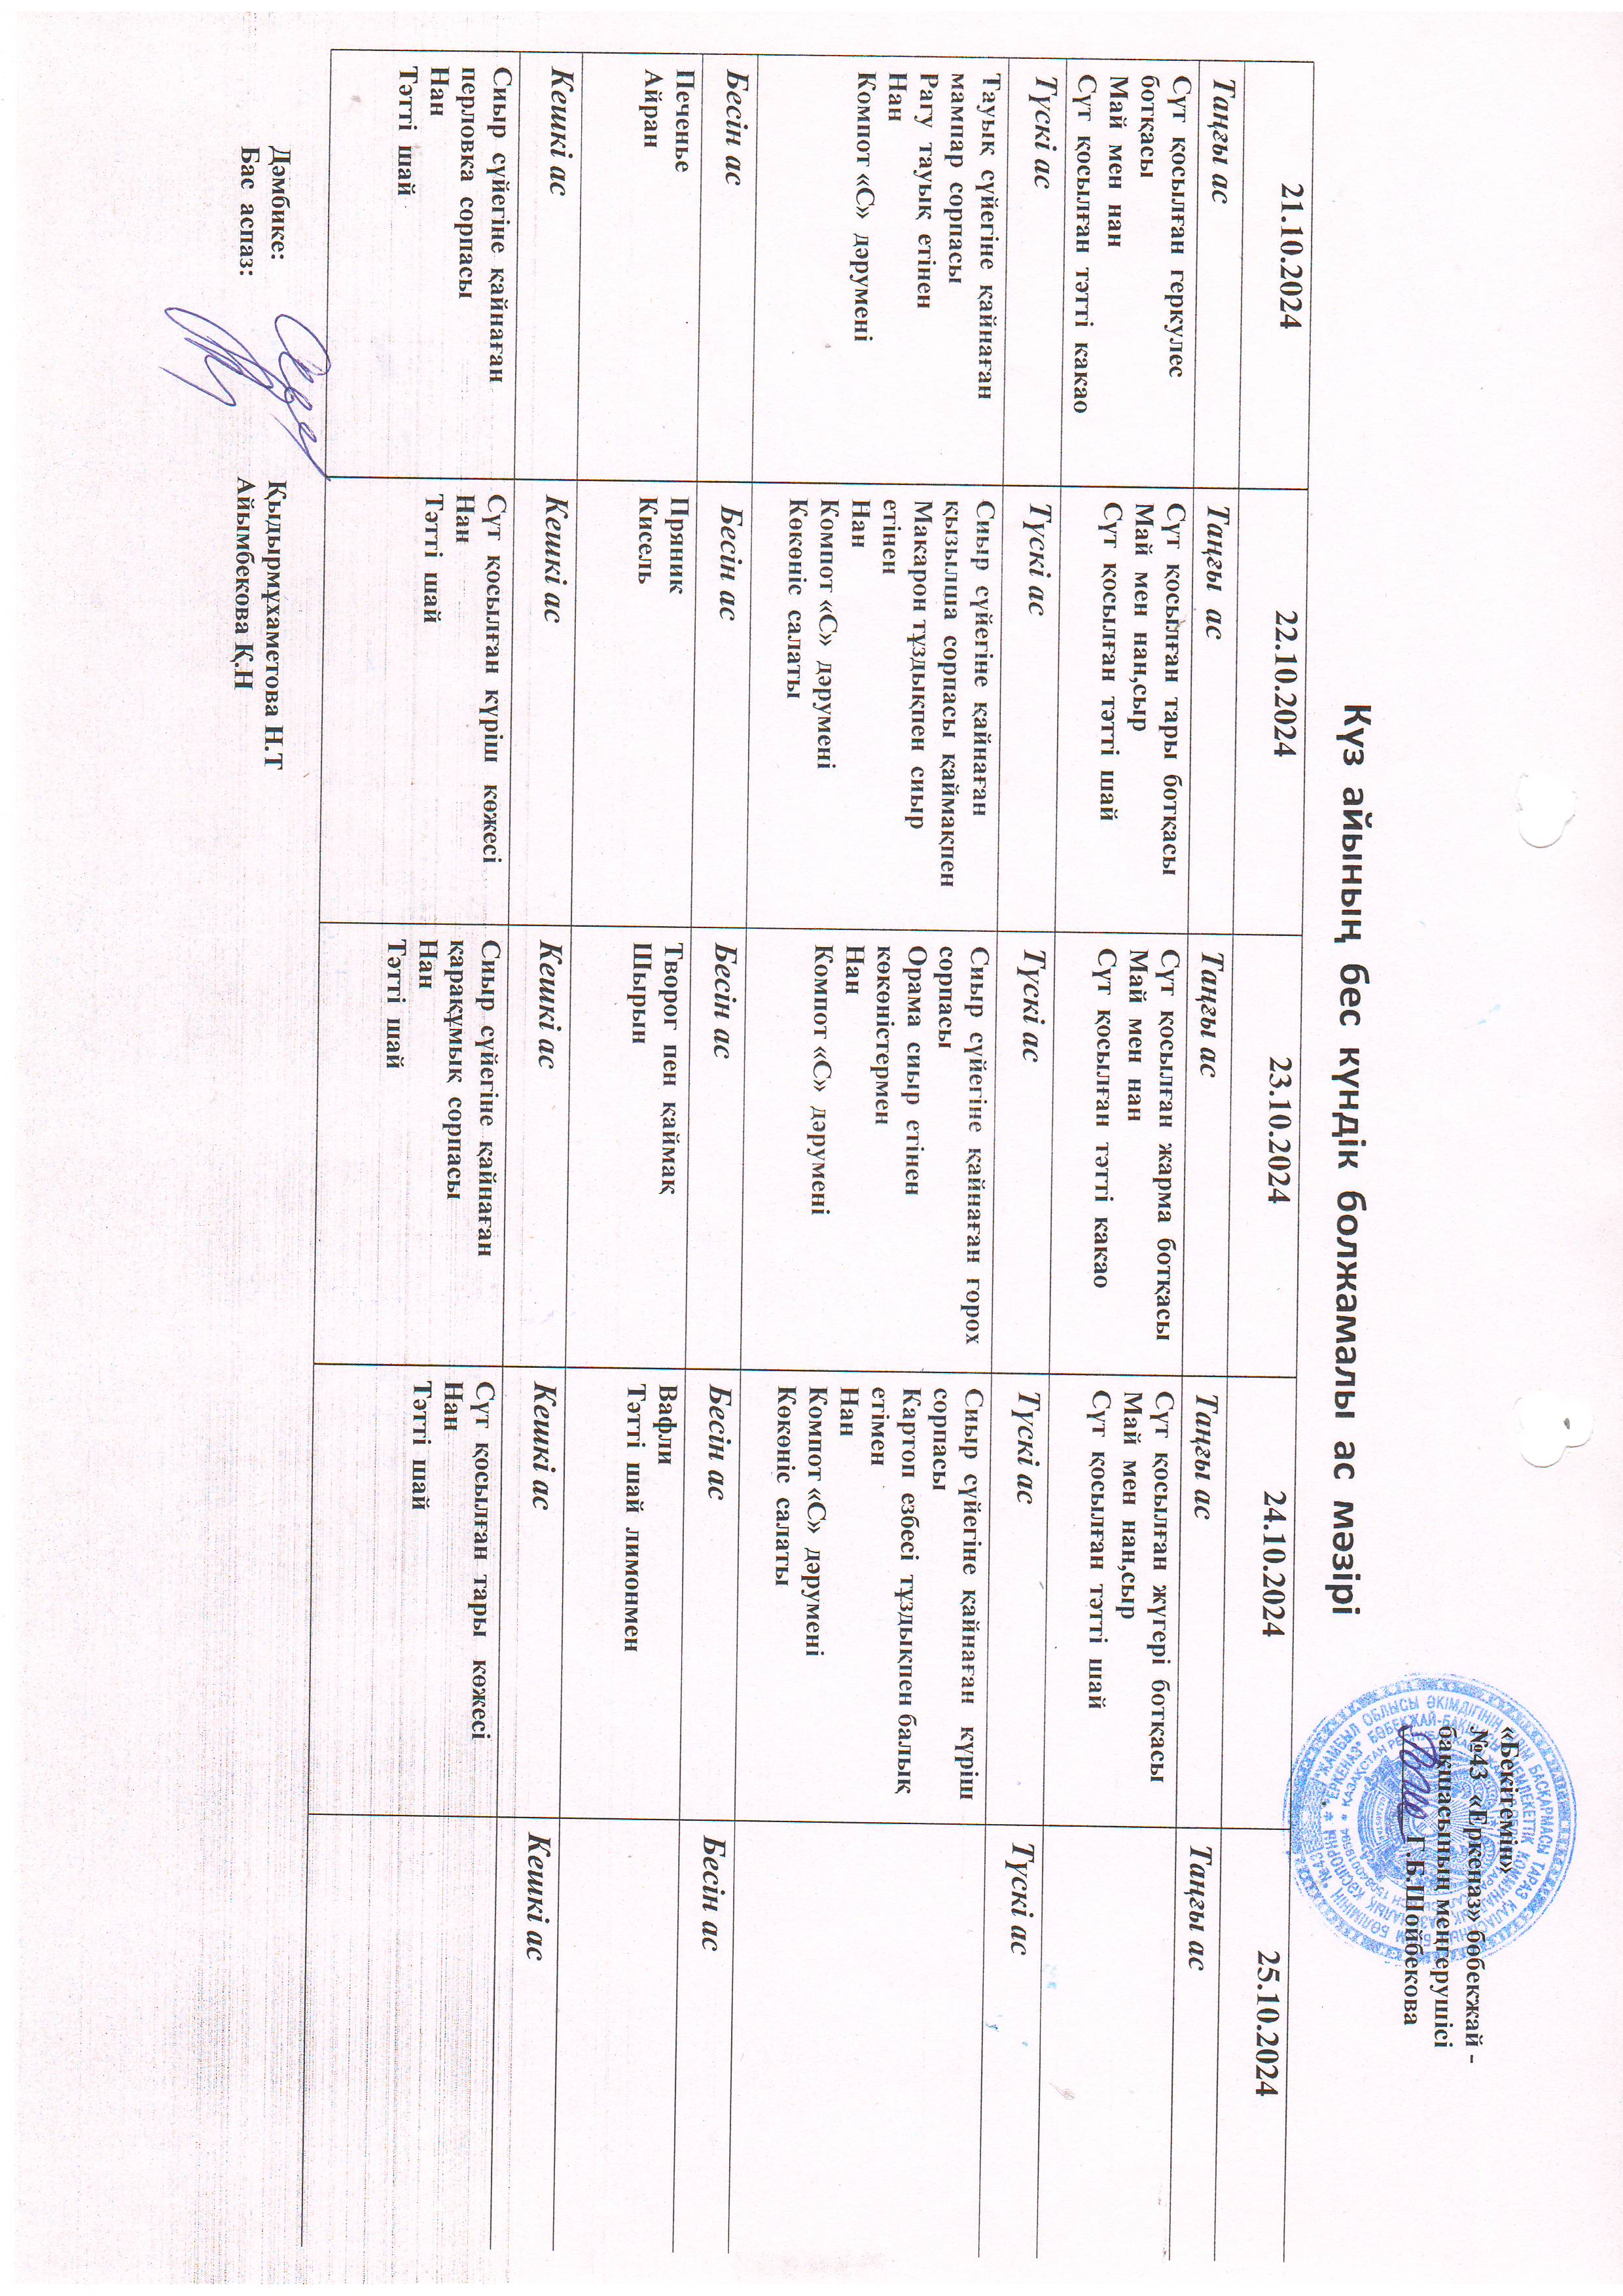 «Бекітемін»
№43 «Еркеназ» бөбекжай -
бақшасының меңгерушісі
Г.Б.Шойбекова
Күз айының бес күндік болжамалы ас мәзірі
21.10.2024
22.10.2024
23.10.2024
24.10.2024
25.10.2024
Таңғы ас
Таңғы ас
Таңғы ас
Таңғы ас
Таңғы ас
Сүт қосылған геркулес
ботқасы
Май мен нан
Сүт қосылған тәтті какао
Сүт қосылған тары ботқасы
Май мен нан,сыр
Сүт қосылған тәтті шай
Сүт қосылған жарма ботқасы
Май мен нан
Сүт қосылған тәтті какао
Сүт қосылған жүгері ботқасы
Май мен нан,сыр
Сүт қосылған тәтті шай
Түскі ас
Түскі ас
Түскі ас
Түскі ас
Түскі ас
Тауық сүйегіне қайнаған
мампар сорпасы
Рагу тауық етінен
Нан
Компот «С» дәрумені
Сиыр сүйегіне қайнаған
қызылша сорпасы қаймақпен
Макарон тұздықпен сиыр
етінен
Нан
Компот «С» дәрумені
Көкөніс салаты
Сиыр сүйегіне қайнаған горох
сорпасы
Орама сиыр етінен
көкөністермен
Нан
Компот «С» дәрумені
Сиыр сүйегіне қайнаған күріш
сорпасы
Картоп езбесі тұздықпен балық
етімен
Нан
Компот «С» дәрумені
Көкөніс салаты
Бесін ас
Бесін ас
Бесін ас
Бесін ас
Бесін ас
Печенье
Айран
Пряник
Кисель
Творог пен қаймақ
Шырын
Вафли
Тәтті шай лимонмен
Кешкі ас
Кешкі ас
Кешкі ас
Кешкі ас
Кешкі ас
Сиыр сүйегіне қайнаған
перловка сорпасы
Нан
Тәтті шай
Сүт қосылған күріш көжесі
Нан
Тәтті шай
Сиыр сүйегіне қайнаған
қарақұмық сорпасы
Нан
Тәтті шай
Сүт қосылған тары көжесі
Нан
Тәтті шай
Дәмбике: Қыдырмұхаметова Н.Т
Бас аспаз: Айымбекова Қ.Н